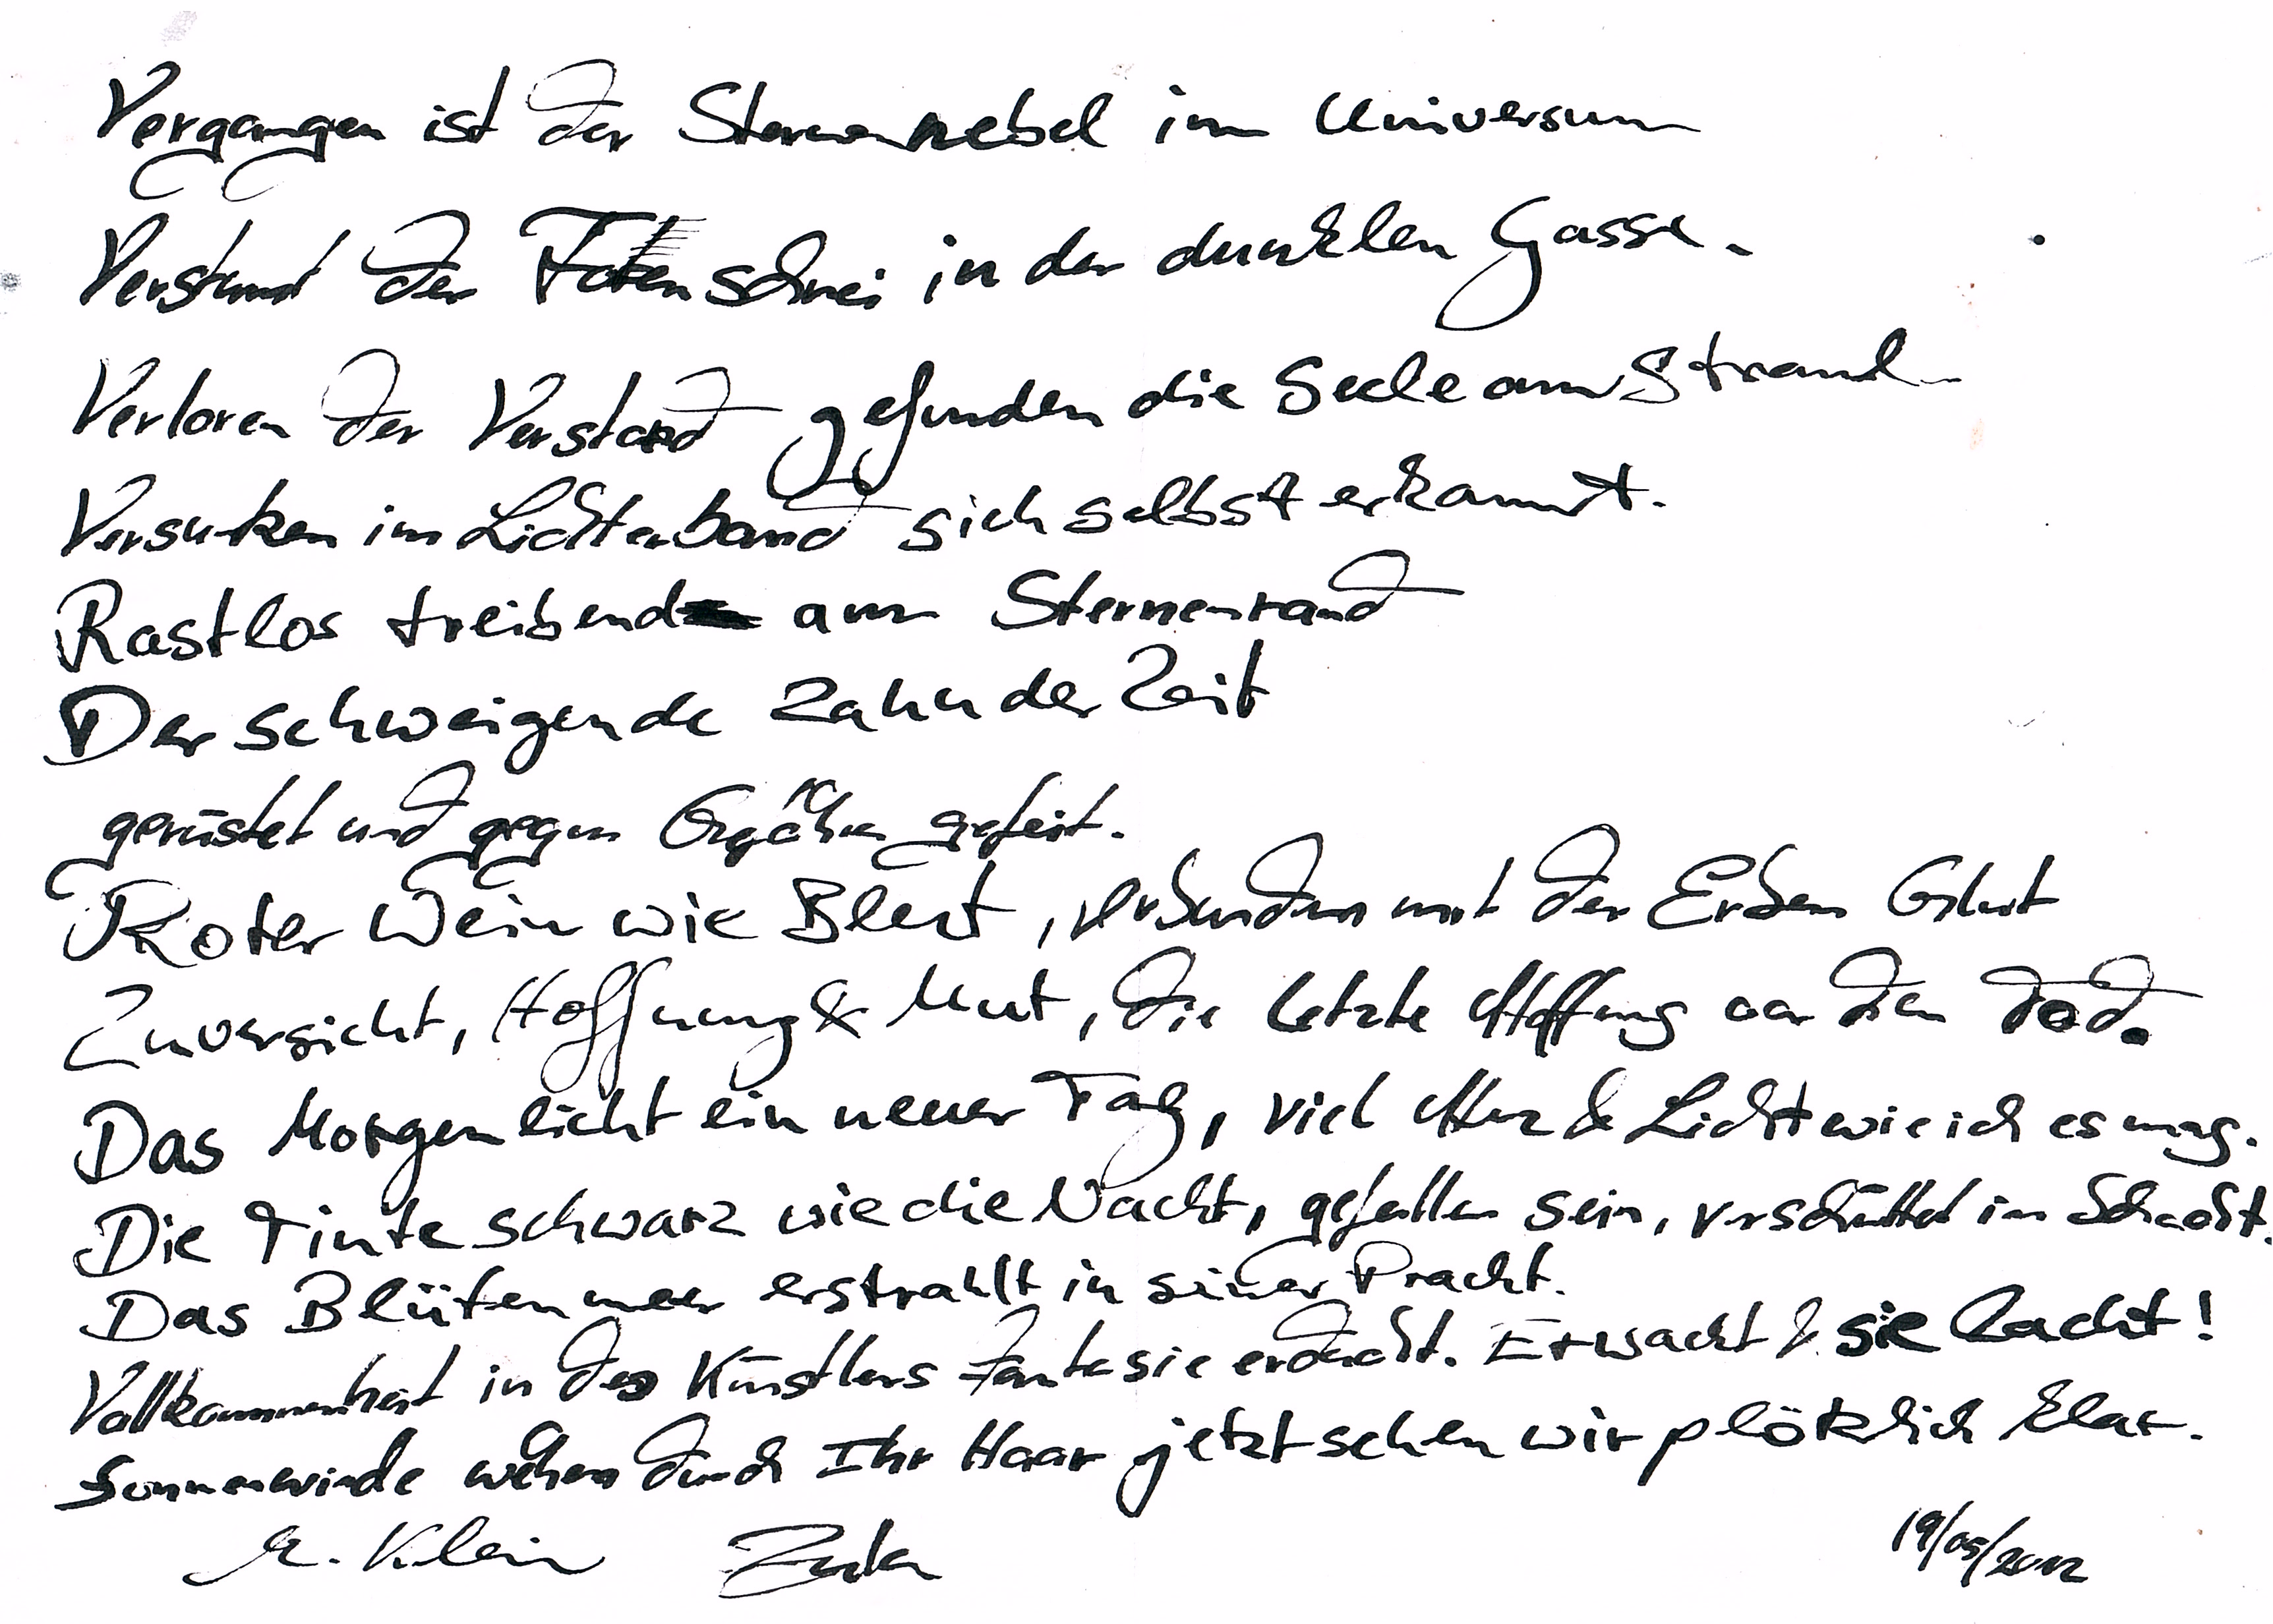 Vergangen ist der Sternennebel im Universum
Verstummt der Totenschrei in der dunklen Gasse.
Verloren der Verstand gefunden die Seele am Strand
Versunken im Lichterband sich selbst erkannt.
Rastlos treibend am Sternenrand
Der schweigende Zahn der Zeit
gerüstet und gegen gefeit.
Roter Wein wie Blut, verbunden mit der Erden Glut
Zuversicht, Hoffnung & Mut, die letzte Hoffnung vor dem Tod.
Das Morgenlicht ein neuer Tag, viel Herz & Licht wie ich es mag.
Die Tinte schwarz wie die Nacht, gefallen sein, verschüttet im Schacht.
Das Blütenmeer erstrahlt in seiner Pracht.
Vollkommenheit in des Künstlers Fantasie erdacht. Erwacht & sie lacht!
Sonnenwinde wehen durch Ihr Haar jetzt sehen wir plötzlich klar.
Klein 19/05/2012